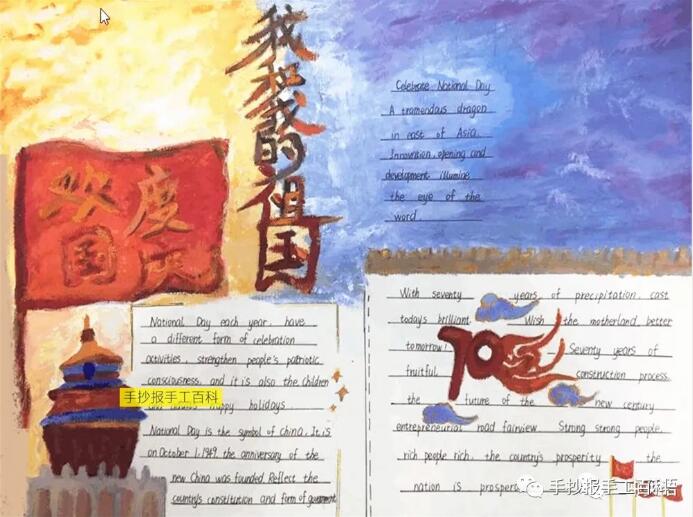 我和我的祖国
欢度
国庆
Celebrate National Day
A tramendous dragon
in east of Asia.
Innovation, opening and
development illumine
the eye of the
word.
National Day each year, have
a different form of celebration
activities, strengthen people's patriotic
consciousness, and it is also the children
手抄报手工百科
happy holidays.
National Day is the symbol of China. It is
on October 1, 1949 the anniversary of the
new China was founded Reflect the
country's constitution and form of government
With seventy years of precipitation, cast
today's brilliant. Wish the motherland better
tomorrow! Seventy years of
70
fruitful construction process,
the future of the new century
entrepreneurial road fairview. Strong strong people,
rich people rich, the country's prosperity the
nation is prospero
手抄报手工